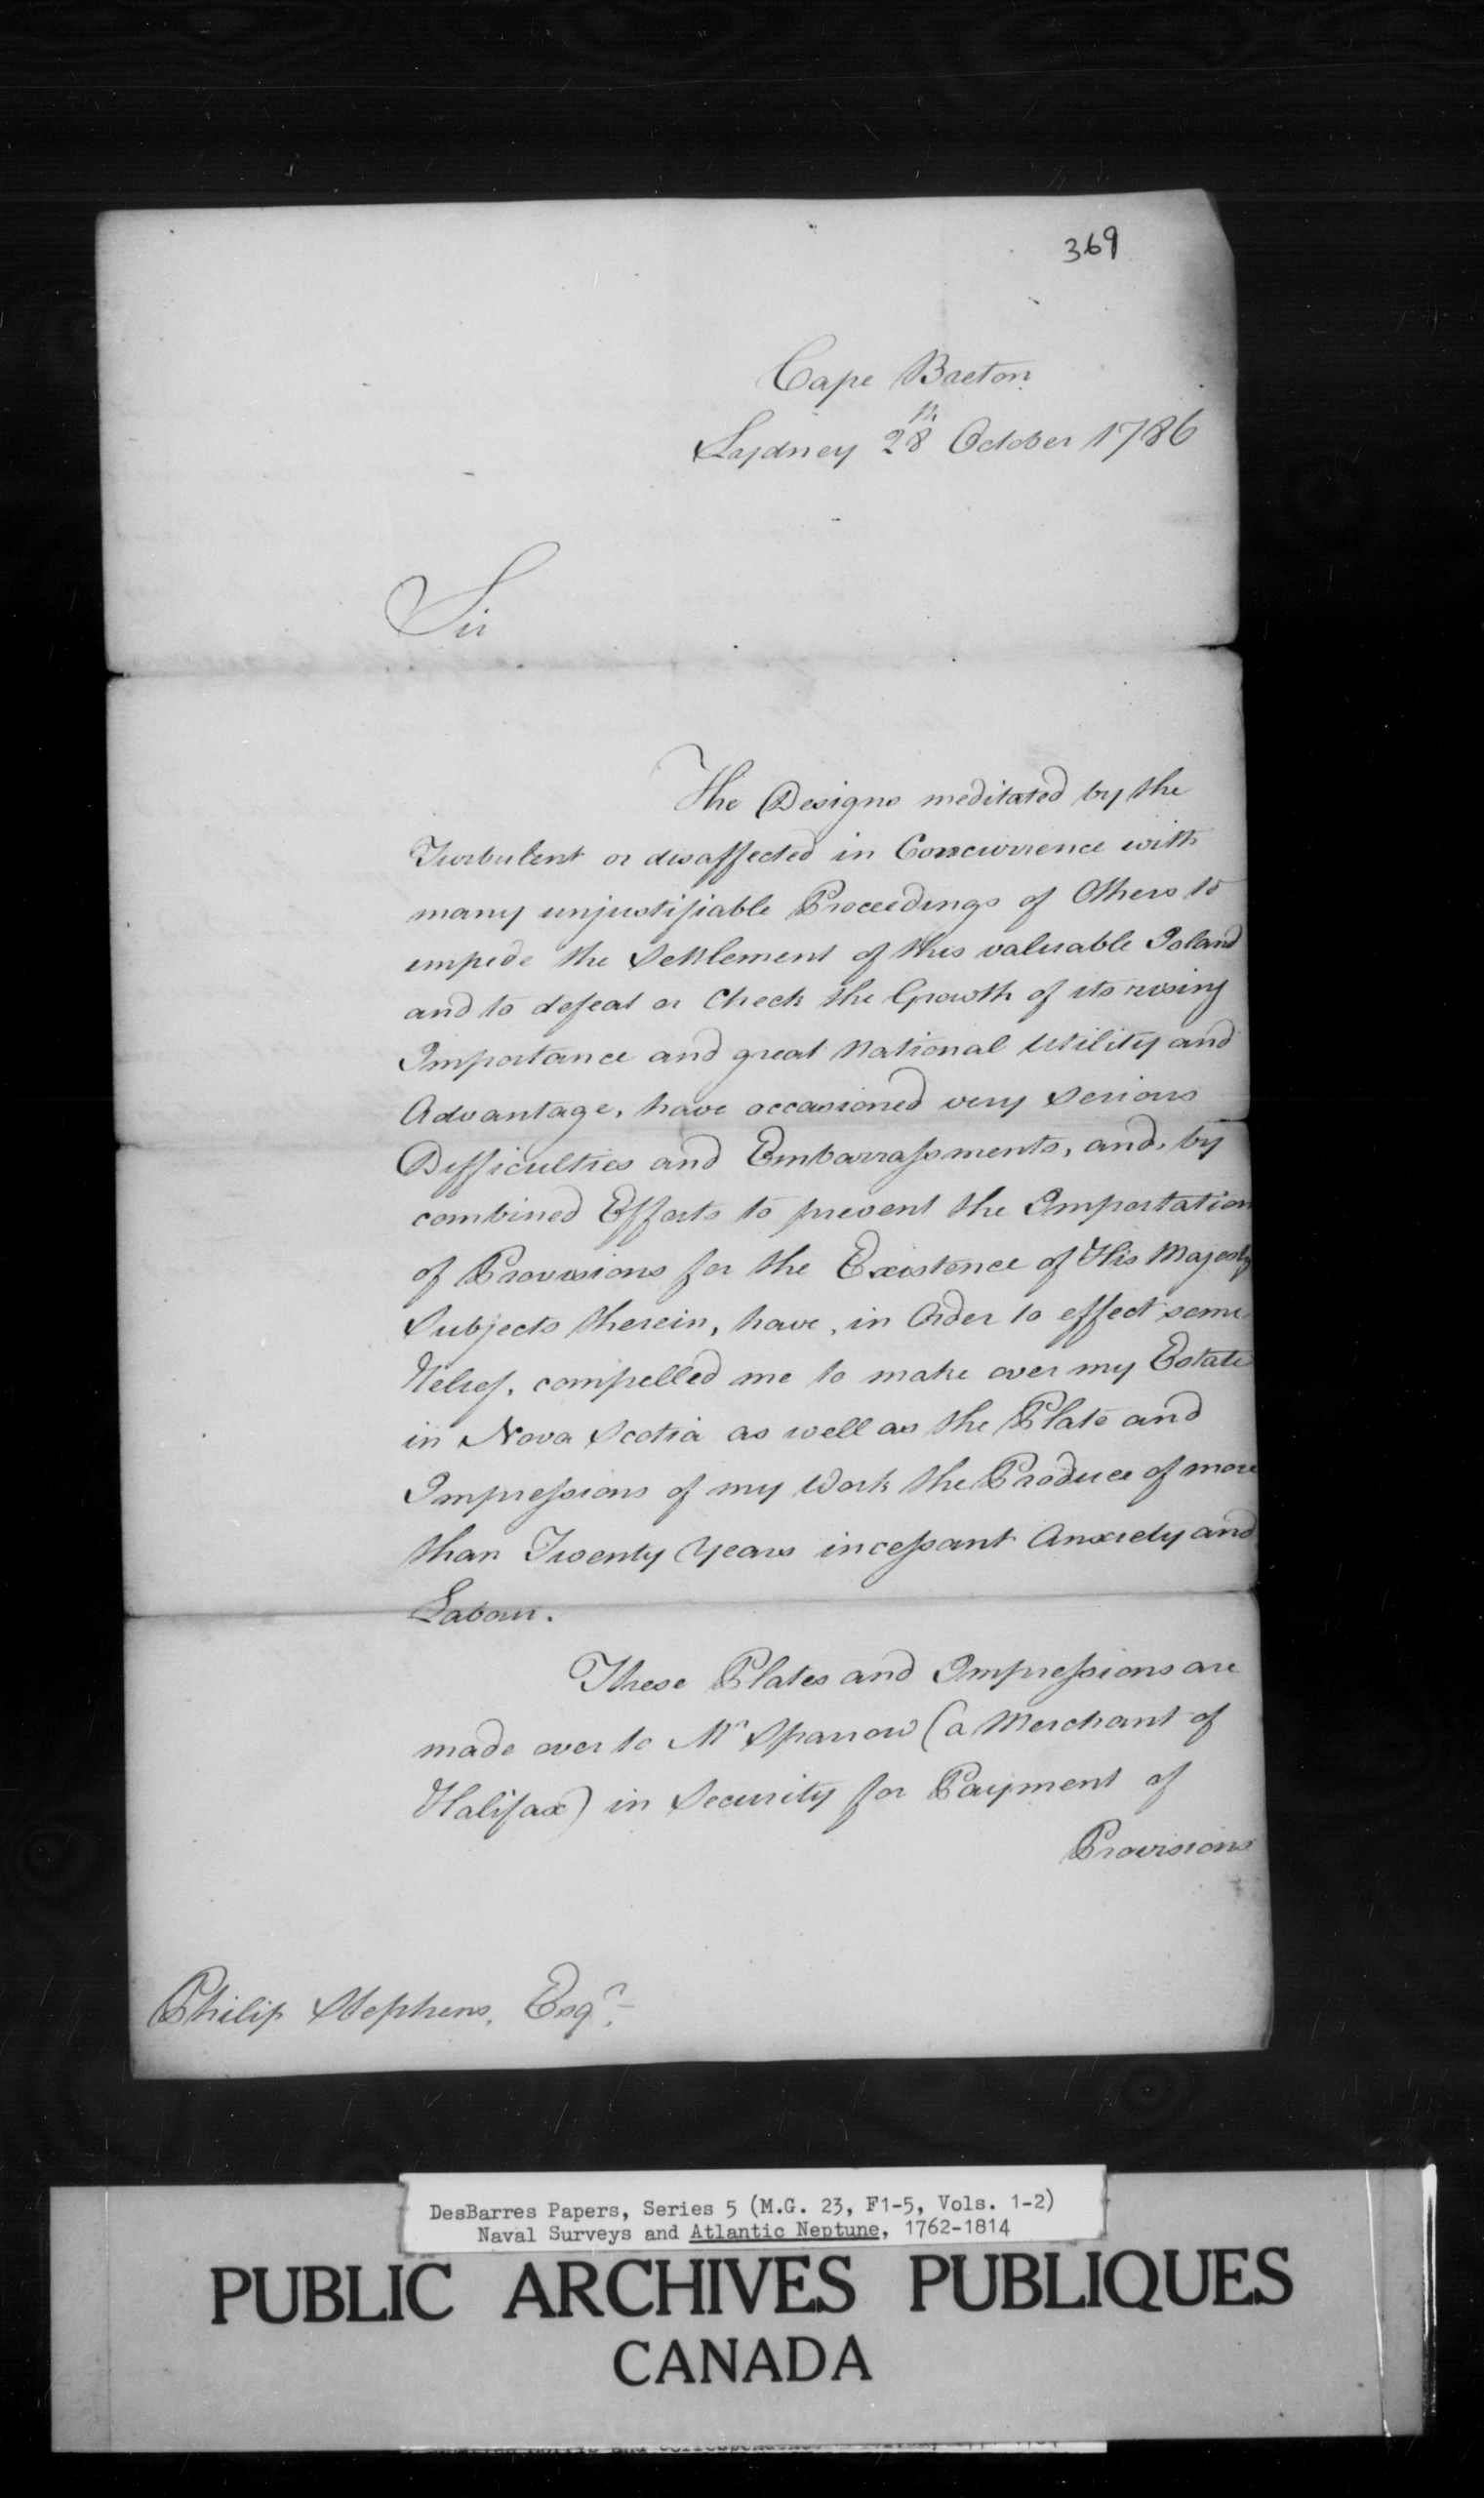 369
Cape Breton
Sydney 28th October 1786
Sir
The Designs meditated by the
Turbulent or disaffected in Concurrence with
many unjustifiable Proceedings of Others to
impede the Settlement of this valuable Island
and to defeat or Check the Growth of its rising
Importance and great National Utility and
Advantage, have occasioned very serious
Difficulties and Embarrassments, and, by
combined Efforts to prevent the Importation
of Provisions for the Existence of His Majesty
Subjects therein, have, in Order to effect some
Relief, compelled me to make over my Estate
in Nova Scotia as well as the Plate and
Impressions of my Work the Produce of more
than Twenty Years incessant Anxiety and
Labour.
These Plates and Impressions are
made over to Mr Sparrow (a Merchant of
Halifax) in Security for Payment of
Provisions
Philip Stephens, Esqr.
DesBarres Papers, Series 5 (M.G. 23, F1-5, Vols. 1-2)
Naval Surveys and Atlantic Neptune, 1762-1814
PUBLIC ARCHIVES PUBLIQUES
CANADA